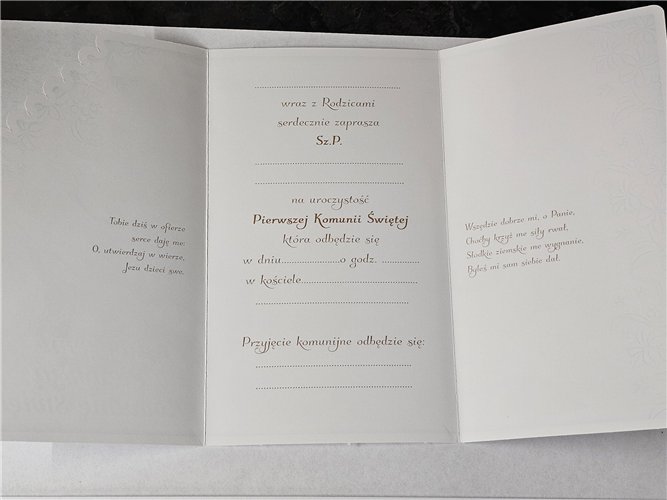 Tobie dziś w ofierze
serce daję me:
O, utwierdzaj w wierze,
Jezu dzieci swe.
............................................
wraz z Rodzicami
serdecznie zaprasza
Sz.P.
............................................
............................................
na uroczystość
Pierwszej Komunii Świętej
która odbędzie się
w dniu.....................o godz. .............
w kościele.........................................
............................................
Przyjęcie komunijne odbędzie się:
............................................
............................................
Wszędzie dobrze mi, o Panie,
Choćby krzyż me siły rwał,
Słodkie ziemskie me wygnanie,
Byleś mi sam siebie dał.